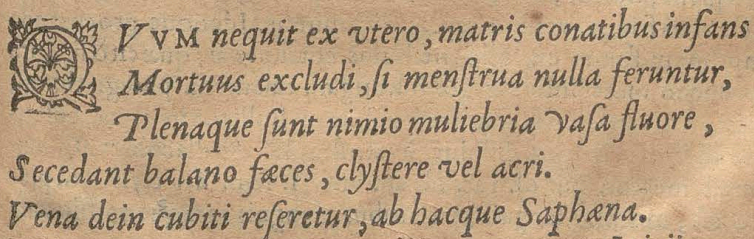 QVVM nequit ex vtero, matris conatibus infans
Mortuus excludi, ſi menſtrua nulla feruntur,
Plenaque ſunt nimio muliebria vaſa fluore,
Secedant balano fæces, clyſtere vel acri.
Vena dein cubiti reſeretur, ab hacque Saphæna.